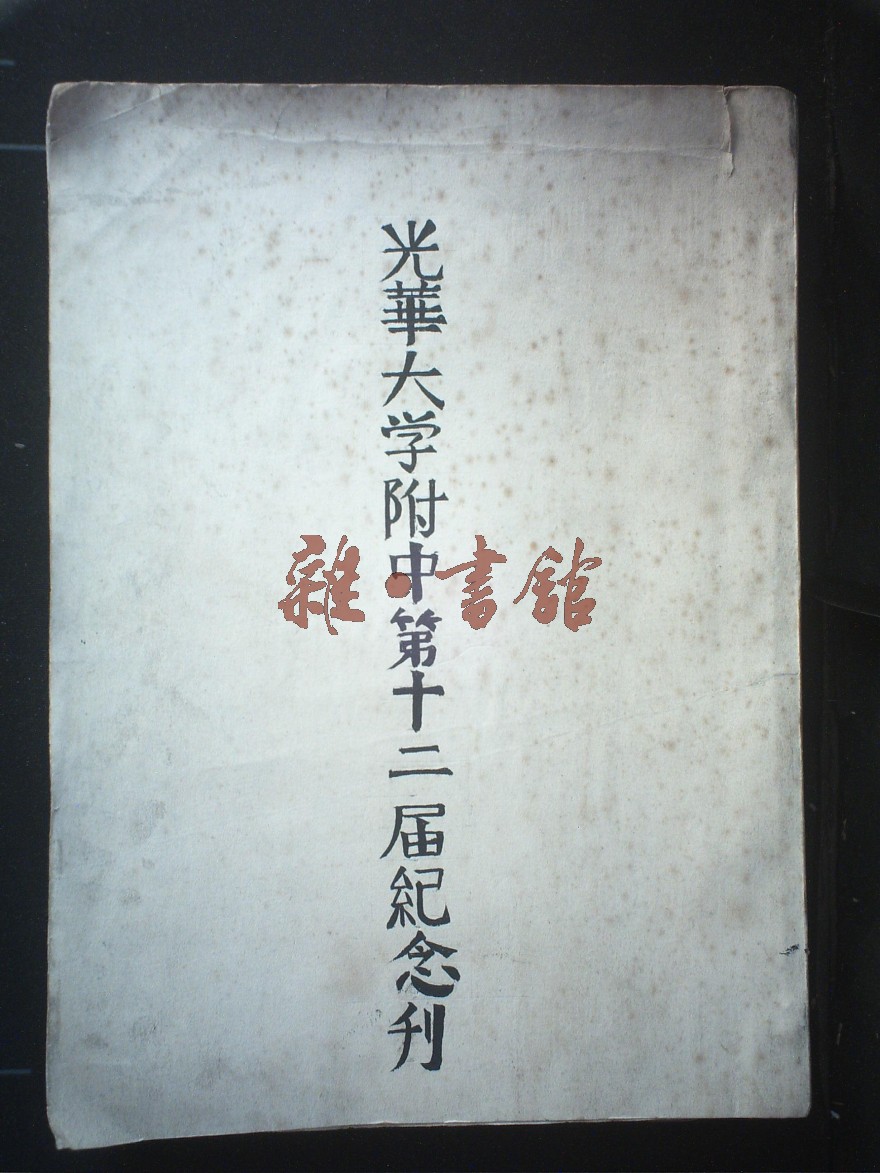 光華大学附中第十二届紀念刊
雜·書館